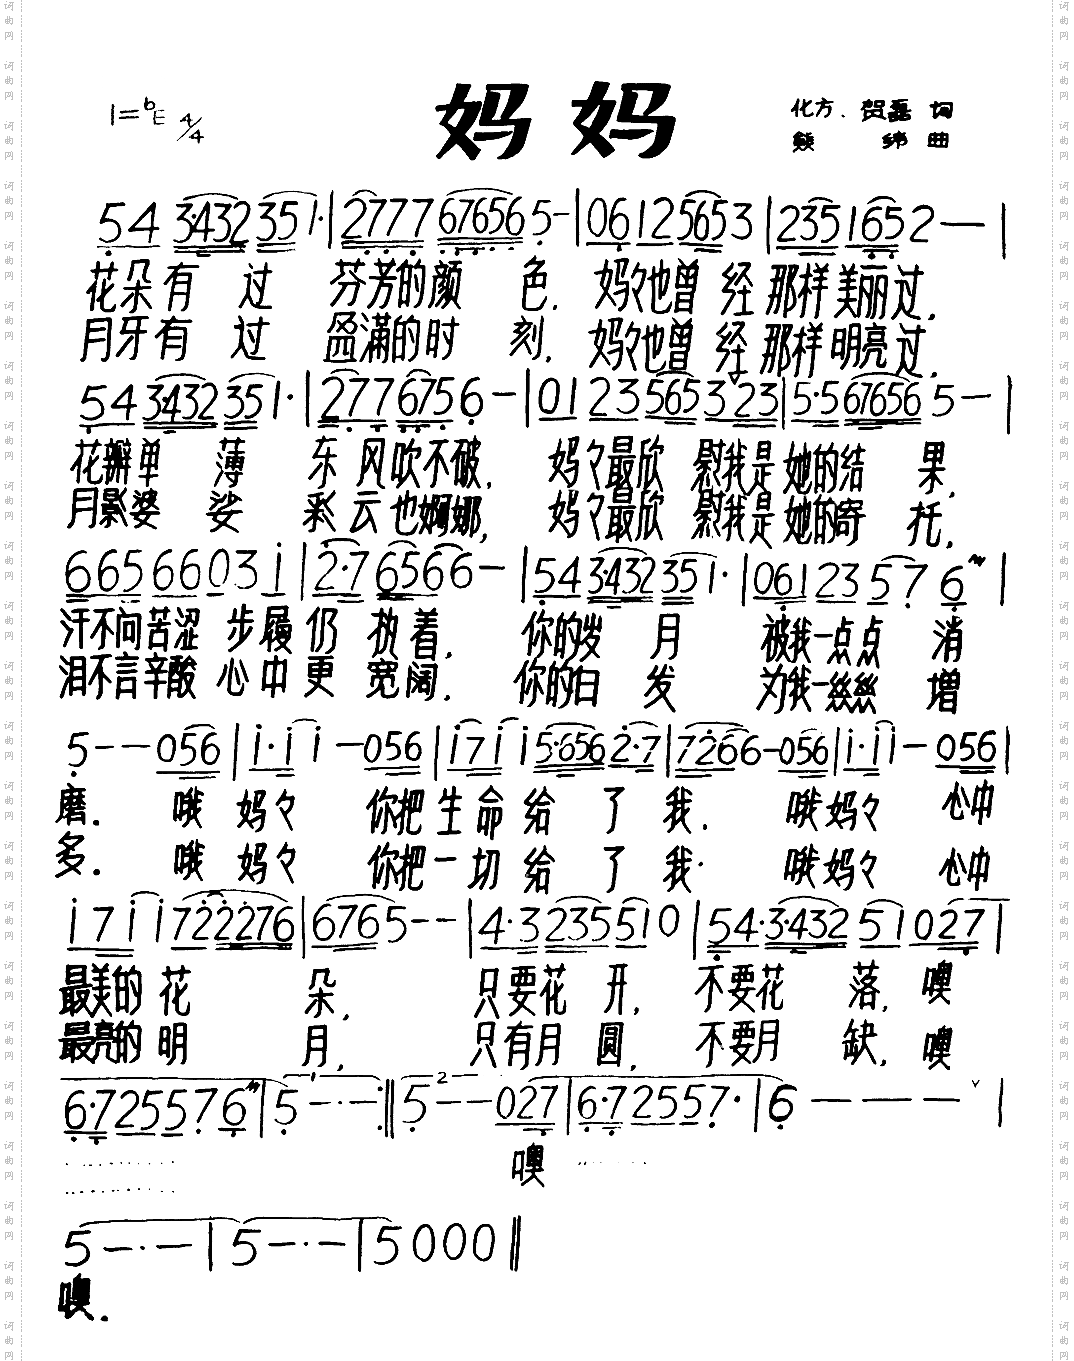 妈妈
1=♭E 4/4
化方、贺磊 词
熊 纬 曲
54 3·432 351· | 2777 676565- | 06125653 | 2351652— |
花朵有过 芬芳的颜色. 妈々也曾经那样美丽过.
月牙有过 盈满的时刻. 妈々也曾经那样明亮过.
54 3·432 351· | 2·77 6756- | 0123565323 | 5·5676565— |
花瓣单薄 东风吹不破. 妈々最欣慰我是她的结果.
月影婆娑 彩云也婀娜, 妈々最欣慰我是她的寄托.
66566031 | 2·76566- | 54 3·432 351· | 06123576 |
汗不问苦涩 步履仍执着. 你的岁月 被我一点点消
泪不言辛酸 心中更宽阔. 你的白发 为我一丝丝增
5--056 | 1·11-056 | 1711 5·6562·7 | 77266-056 | 1·11-056 |
磨. 哦妈々 你把生命给了我. 哦妈々 心中
多. 哦妈々 你把一切给了我. 哦妈々 心中
1711722276 | 6765-- | 4·3235510 | 54·3·43251027 |
最美的花朵. 只要花开, 不要花落, 噢
最亮的明月. 只有月圆, 不要月缺, 噢
6·725576 | 1 5-·- :‖ 2 5--027 | 6·72557· | 6———|
噢
5-·- | 5-·- | 5000 ‖
噢.
词曲网